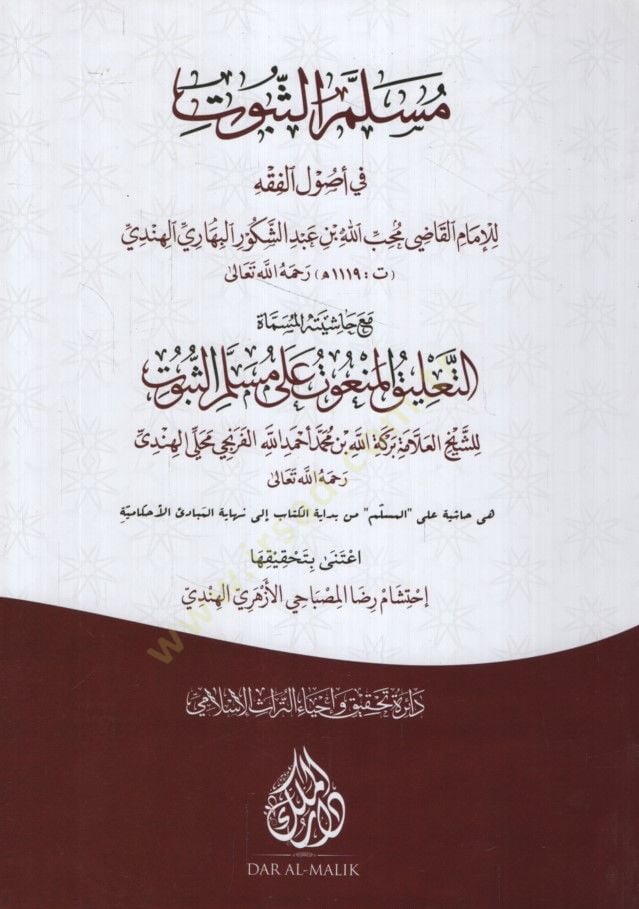 مُسَلَّمُ الثُّبُوتِ
فِي أُصُوْلِ الفِقْهِ
لِلْإِمَامِ القَاضِي مُحِبِّ اللهِ بْنِ عَبْدِ الشَّكُوْرِ البِهَارِيِّ الهِنْدِيِّ
(ت: ١١١٩هـ) رَحِمَهُ اللهُ تَعَالَى
مَعَ حَاشِيَتِهِ المُسَمَّاةِ
التَّعْلِيْقُ المَنْعُوْتُ عَلَى مُسَلَّمِ الثُّبُوْتِ
لِلشَّيْخِ العَلَّامَةِ بَرَكَةِ اللهِ بْنِ مُحَمَّد أَحْمَدِ اللهِ الفَرَنْجِي مَحَلِّي الهِنْدِيِّ
رَحِمَهُ اللهُ تَعَالَى
هي حاشية على "المسلّم" من بداية الكتاب إلى نهاية المبادئ الأحكاميّة
اعْتَنَى بِتَحْقِيْقِهَا
إِحْتِشَام رِضَا المِصْبَاحِي الأَزْهَرِيّ الهِنْدِيّ
دَائِرَة تَحْقِيْق وَإِحْيَاء التُّرَاث الإِسْلَامِي
دار الملك
DAR AL-MALIK